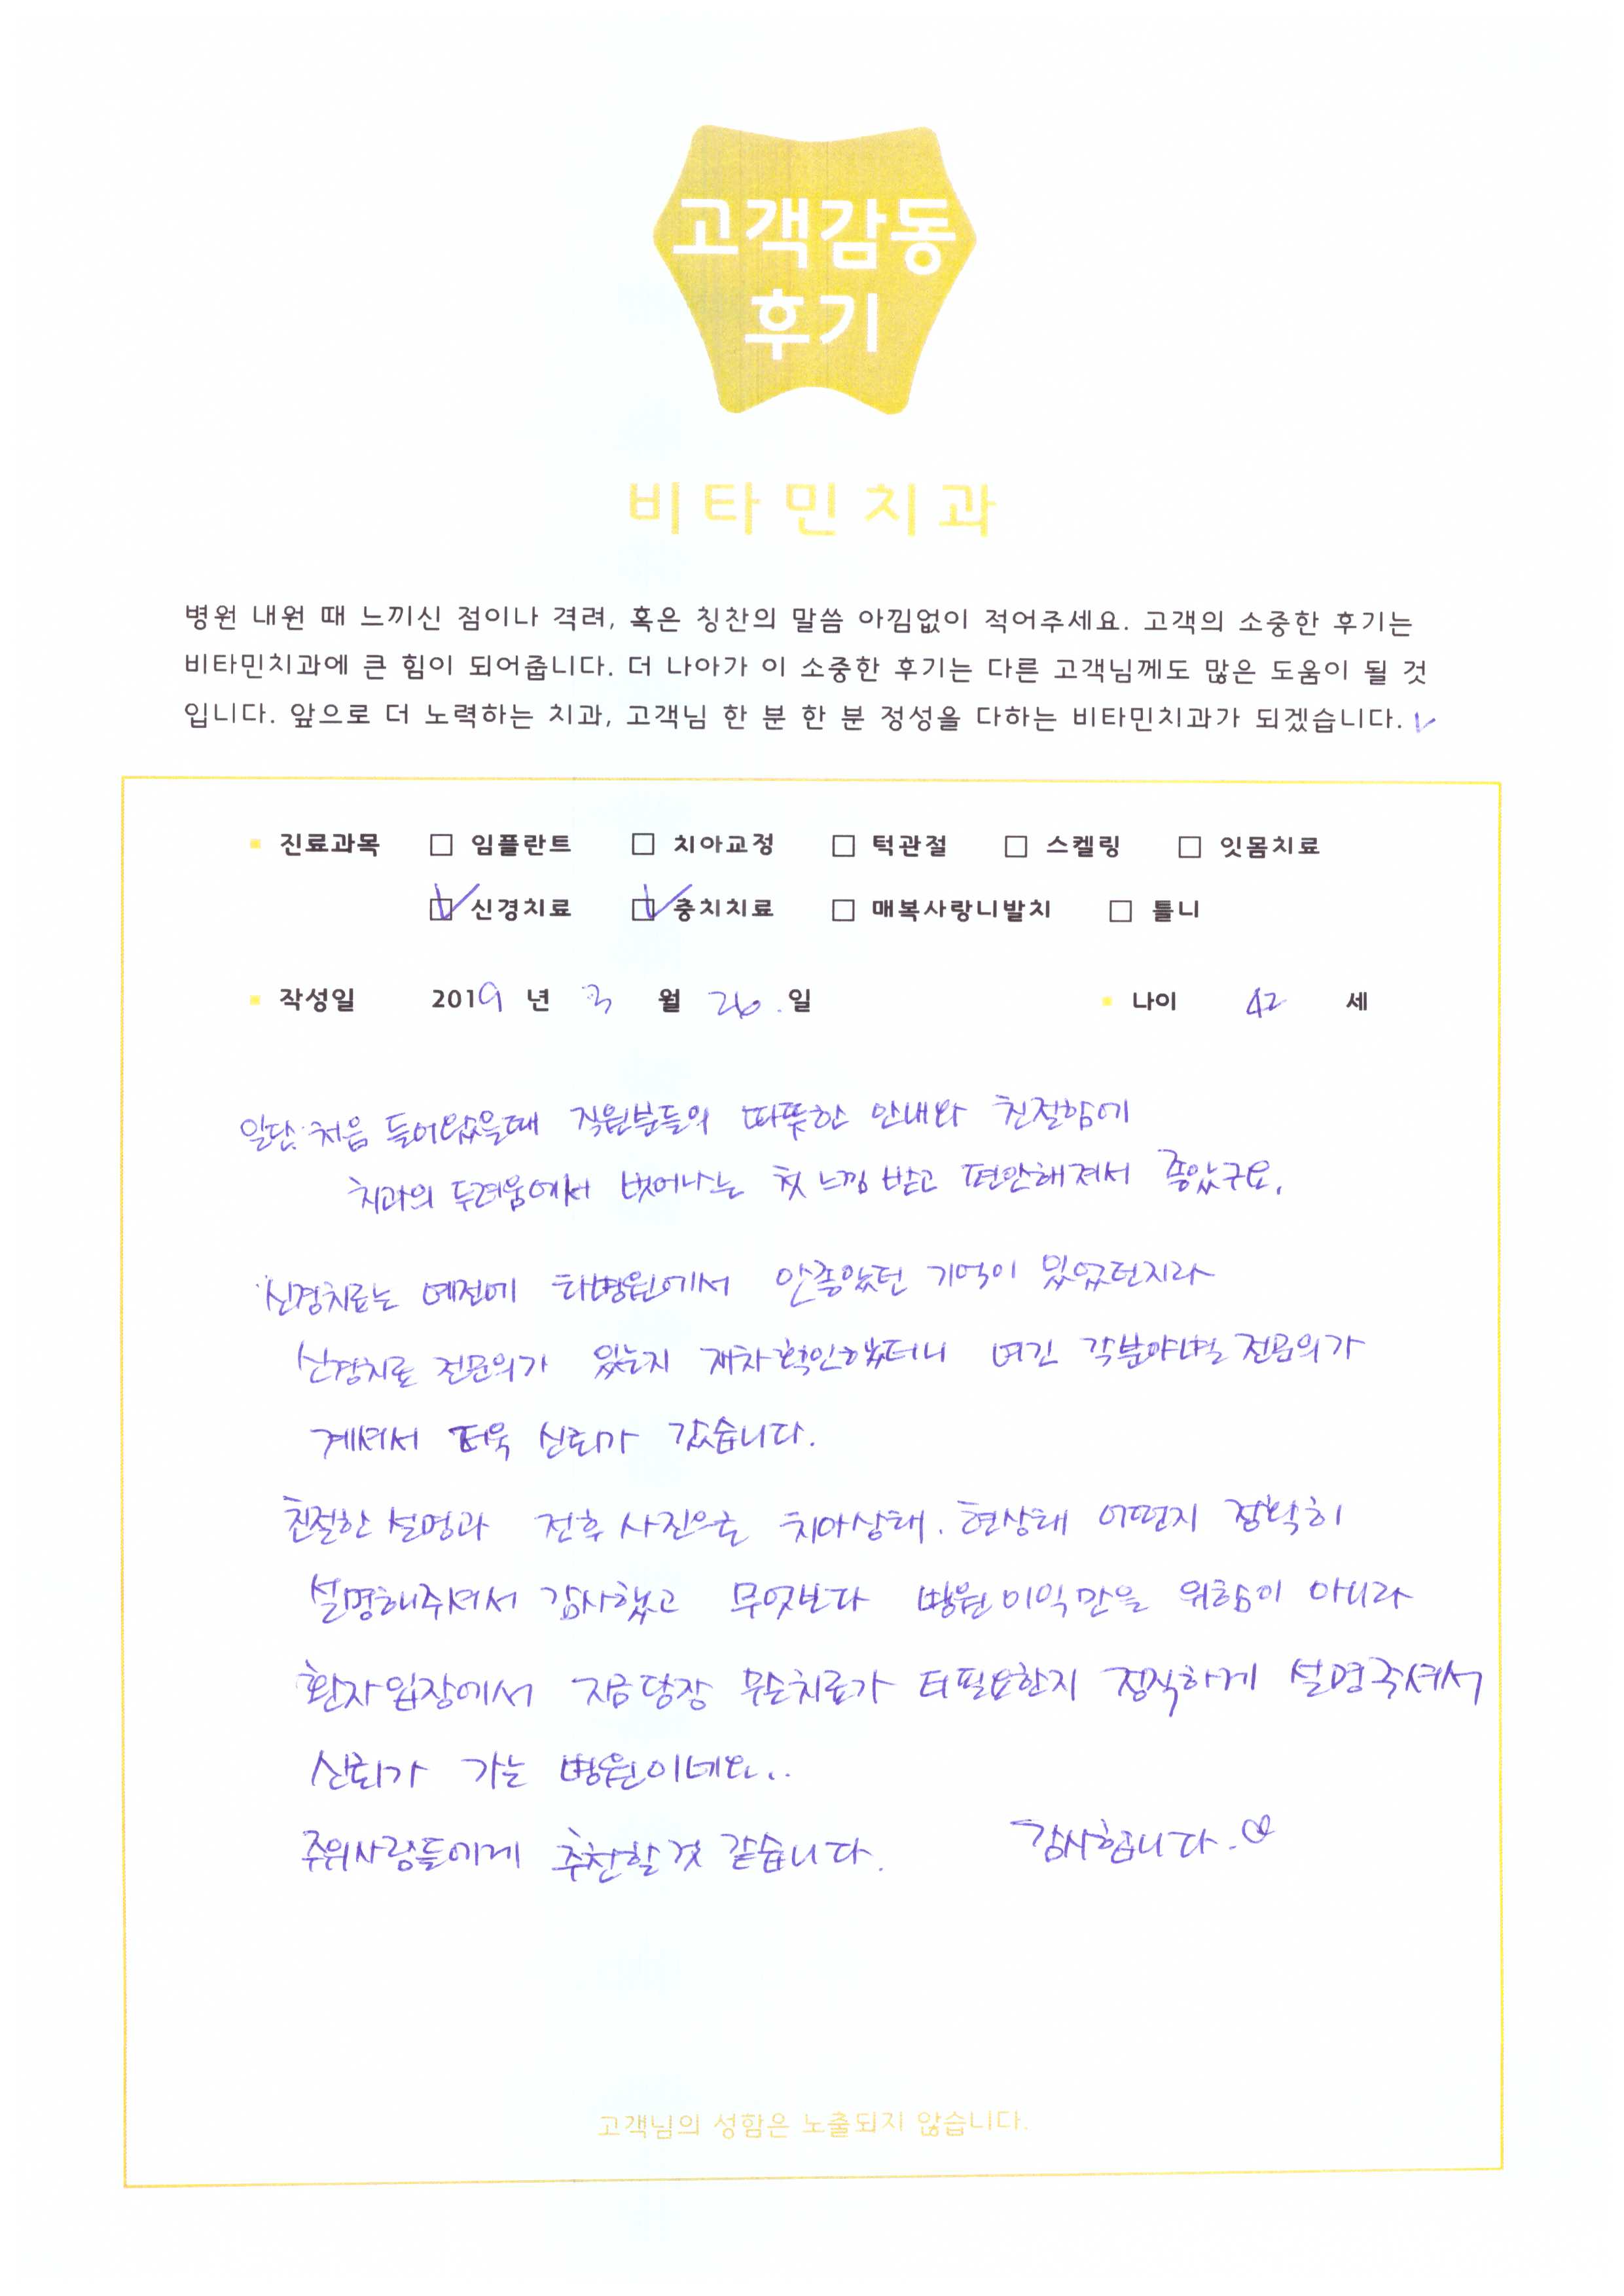 고객감동
후기
비타민치과
병원 내원 때 느끼신 점이나 격려, 혹은 칭찬의 말씀 아낌없이 적어주세요. 고객의 소중한 후기는
비타민치과에 큰 힘이 되어줍니다. 더 나아가 이 소중한 후기는 다른 고객님께도 많은 도움이 될 것
입니다. 앞으로 더 노력하는 치과, 고객님 한 분 한 분 정성을 다하는 비타민치과가 되겠습니다.
진료과목 □ 임플란트 □ 치아교정 □ 턱관절 □ 스켈링 □ 잇몸치료
☑ 신경치료 ☑ 충치치료 □ 매복사랑니발치 □ 틀니
작성일 2019 년 3 월 26 일 나이 42 세
일단 처음 들어왔을때 직원분들의 따뜻한 안내와 친절함에
치과의 두려움에서 벗어나는 첫 느낌 받고 편안해져서 좋았구요.
신경치료는 예전에 타병원에서 안좋았던 기억이 있었던지라
신경치료 전문의가 있는지 재차확인했더니 여긴 각분야별 전문의가
계셔서 더욱 신뢰가 갔습니다.
친절한 설명과 전후 사진으로 치아상태. 현상태 어떤지 정확히
설명해주셔서 감사했고 무엇보다 병원이익만을 위함이 아니라
환자입장에서 지금당장 무슨치료가 더필요한지 정직하게 설명주셔서
신뢰가 가는 병원이네요..
주위사람들에게 추천할것 같습니다. 감사합니다.♡
고객님의 성함은 노출되지 않습니다.